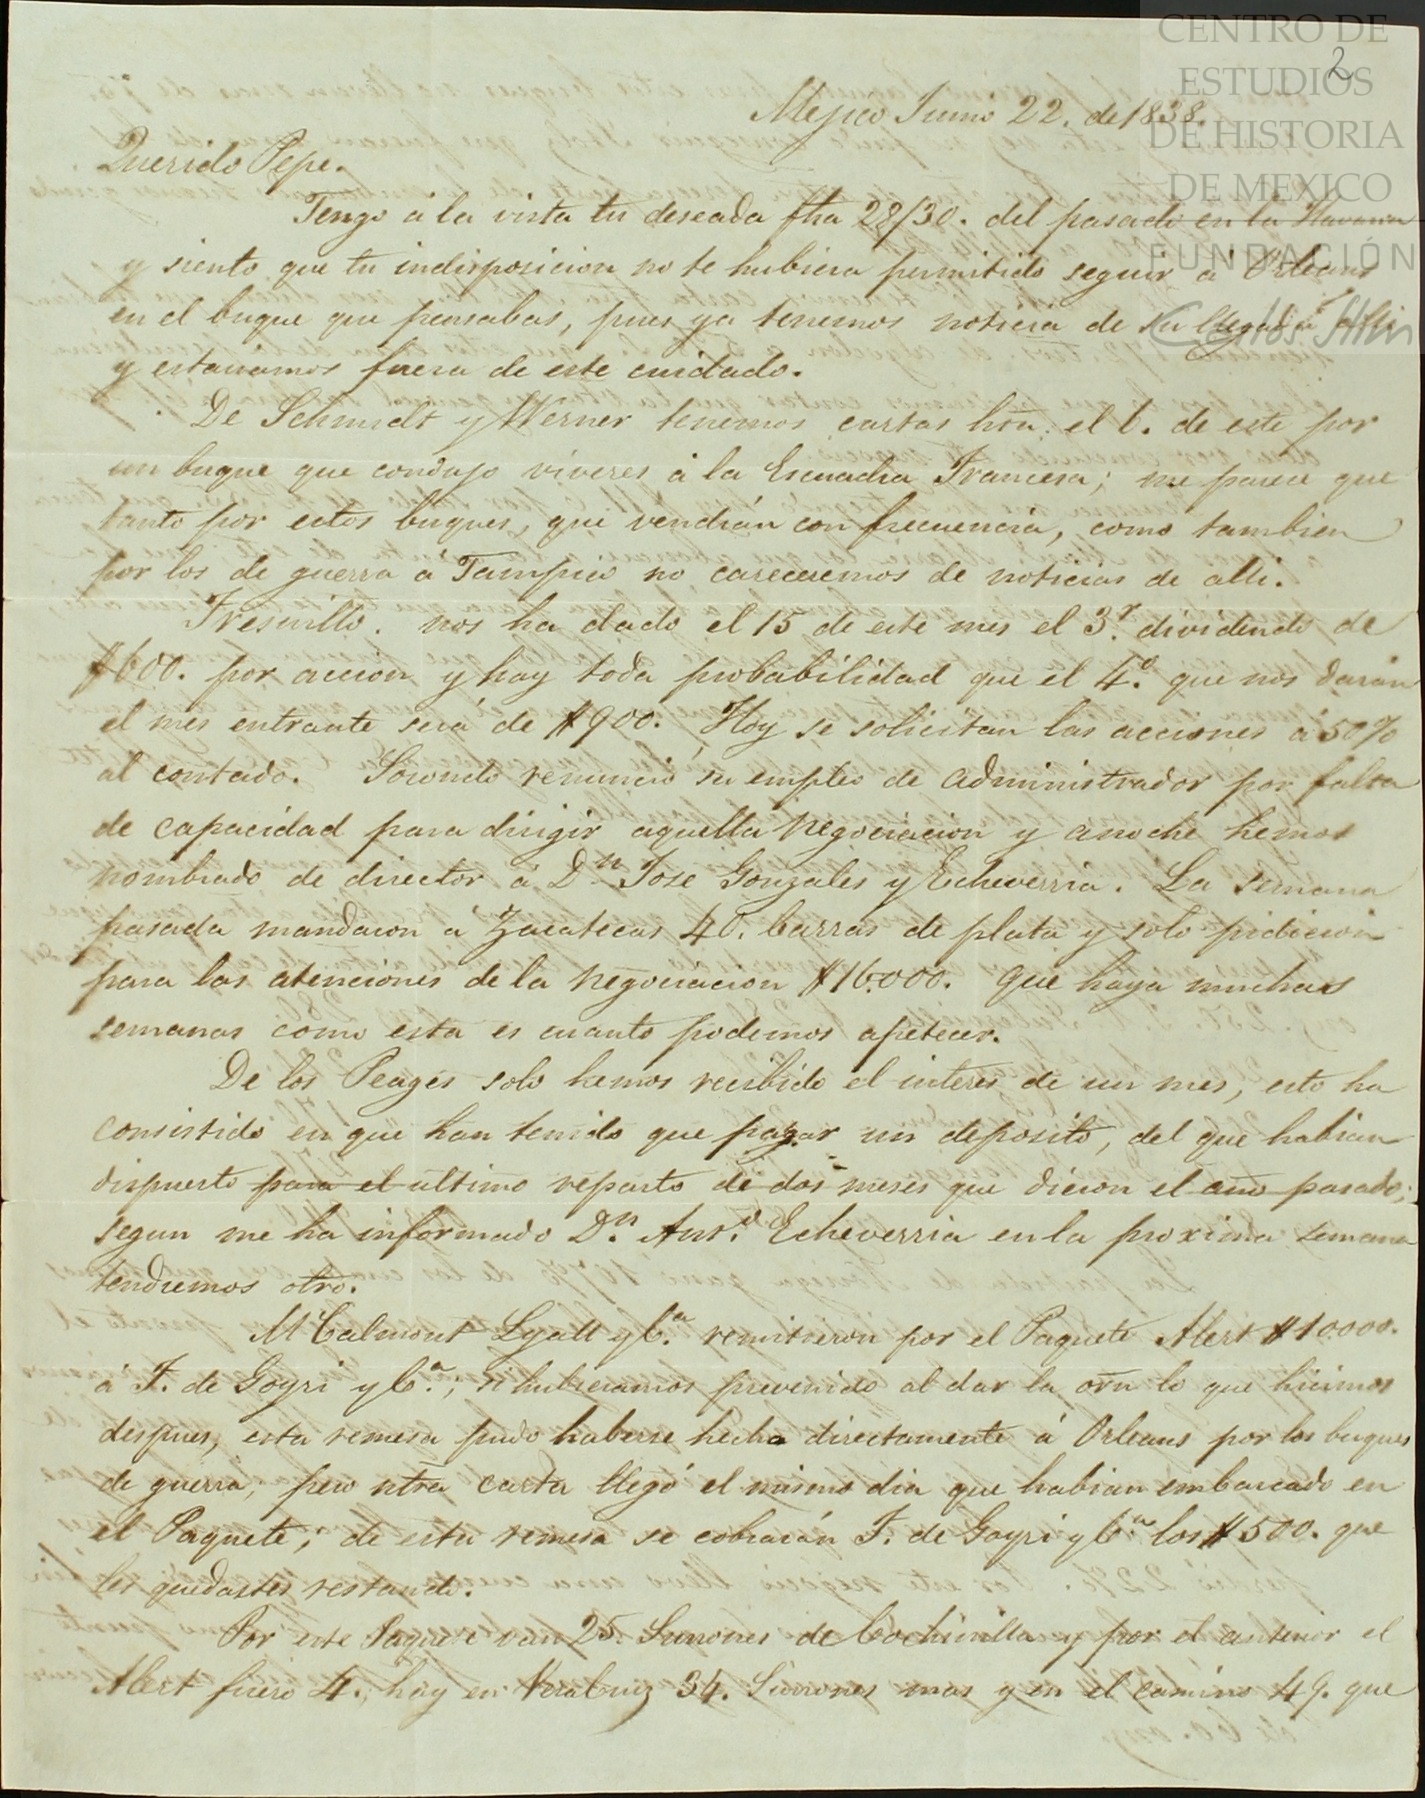 CENTRO DE
ESTUDIOS
DE HISTORIA
DE MEXICO
FUNDACIÓN
Carlos Slim
2
Mejico Junio 22. de 1838.
Querido Pepe.
Tengo á la vista tu deseada fha 28/30. del pasado en la Havana
y siento que tu indisposicion no te hubiera permitido seguir á Orleans
en el buque que pensabas, pues ya tenemos noticia de su llegada alli
y estariamos fuera de este cuidado.
De Schmidt y Werner tenemos cartas hta. el 6. de este por
un buque que condujo viveres á la Escuadra Francesa; me parece que
tanto por estos buques, que vendrán con frecuencia, como tambien
por los de guerra á Tampico no careceremos de noticias de alli.
Fresnillo. nos ha dado el 15 de este mes el 3.r dividendo de
$600. por accion y hay toda probabilidad que el 4.o que nos darán
el mes entrante será de $900. Hoy se solicitan las acciones á 50%
al contado. renunció su empleo de administrador por falta
de capacidad para dirigir aquella negociacion y anoche hemos
nombrado de director á Dn Jose Gonzales y Echeverria. La semana
pasada mandaron á Zacatecas 40. barras de plata y solo pidieron
para las atenciones de la negociacion $16.000. que haya muchas
semanas como esta es cuanto podemos apetecer.
De los Peages solo hemos recibido el interes de un mes, esto ha
consistido en que han tenido que pagar un deposito, del que habian
dispuesto para el ultimo reparto de dos meses que dieron el año pasado;
segun me ha informado Dn. Anto. Echeverria en la proxima semana
tendremos otro.
McCalmont Lyall y Ca. remitieron por el Paquete Alert $10000.
á F. de Goyri y Ca.; si hubieramos prevenido al dar la orn lo que hicimos
despues, esta remesa pudo haberse hecho directamente á Orleans por los buques
de guerra; pero ntra carta llegó el mismo dia que habian embarcado en
el Paquete; de esta remesa se cobrarán F. de Goyri y Ca los $500. que
les quedastes restando.
Por este Paquete van 25. Surrones de Cochinilla y por el anterior el
Alert fuero 4.; hay en VeraCruz 34. Surrones mas y en el camino 49. que